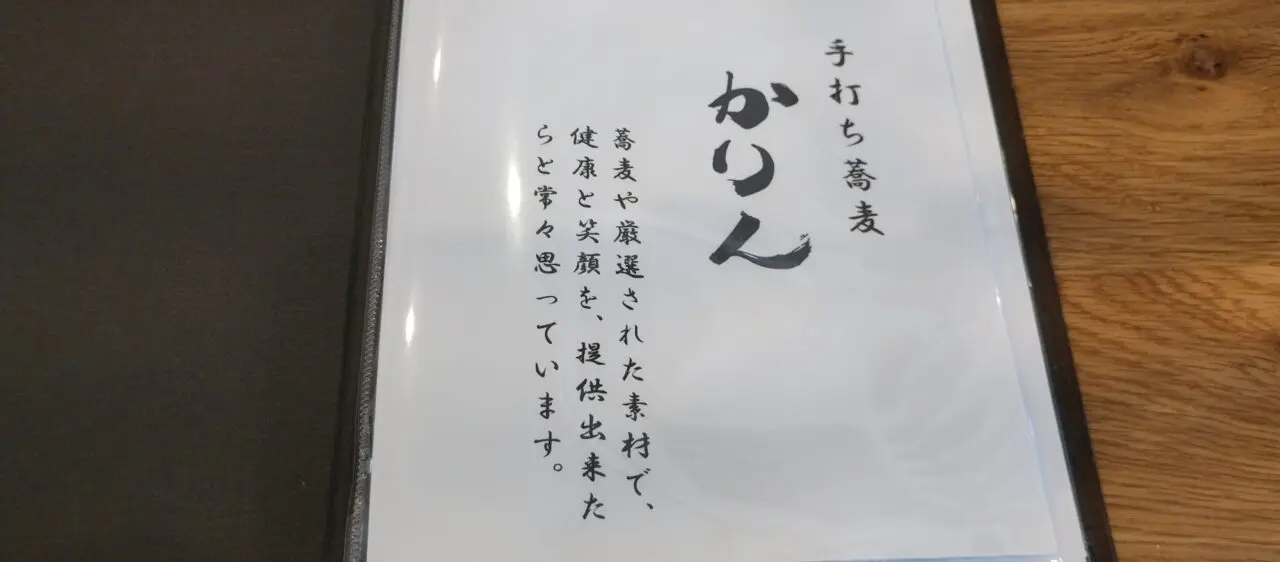 手打ち蕎麦
かりん
蕎麦や厳選された素材で、
健康と笑顔を、提供出来た
らと常々思っています。